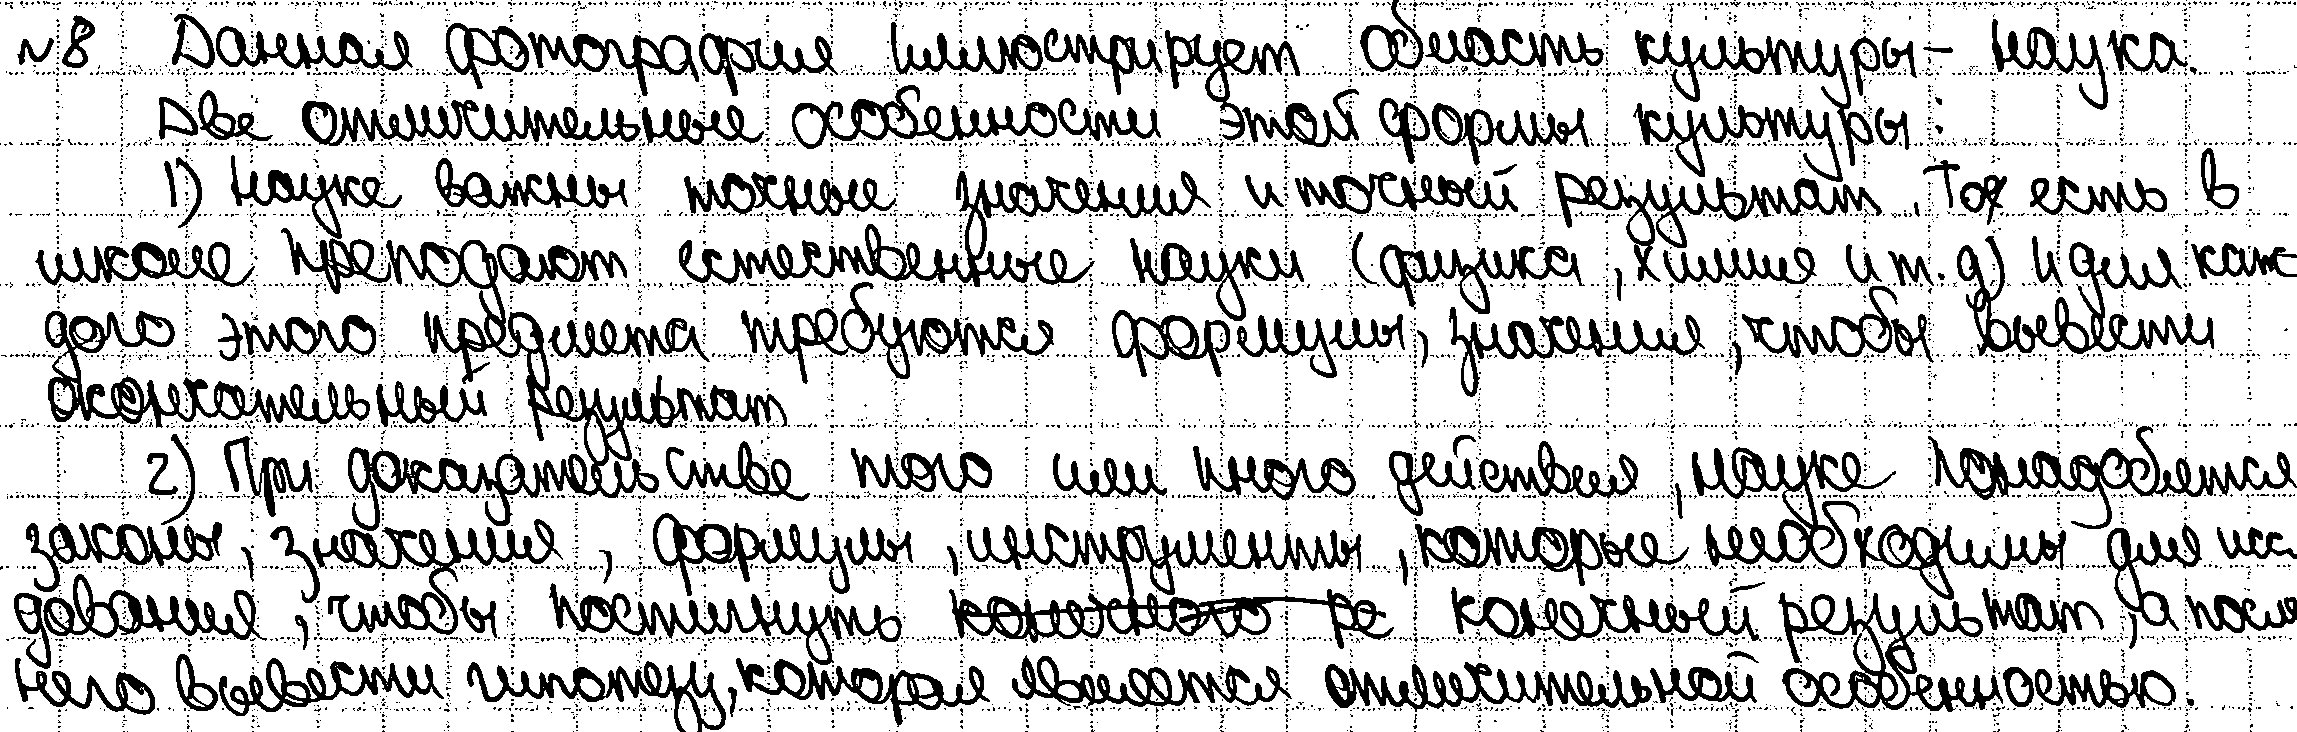 №8 Данная фотография иллюстрирует область культуры – наука.
Две отличительные особенности этой формы культуры:
1) Науке важны точные значения и точный результат. То есть в
школе преподают естественные науки (физика, химия и т. д) и для каж
дого этого предмета требуются формулы, значения, чтобы вывести
окончательный результат
2) При доказательстве того или иного действия, науке понадобятся
законы, значения, формулы, инструменты, которые необходимы для исс
дования, чтобы постигнуть конечного ре конечный результат, а после
него вывести гипотезу, которая является отличительной особенностью.